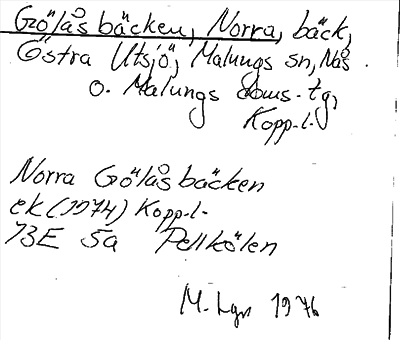 Gölåsbäcken, Norra, bäck,
Östra Utsjö, Malungs sn, Nås
o. Malungs doms. tg,
Kopp. l.
Norra Gölåsbäcken
ek (1974) Kopp. l.
13E 5a Pellkölen
M. Lgn 1976